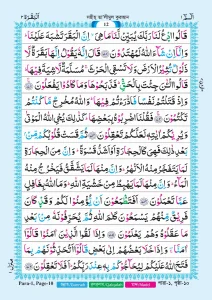 قَالُوا ادْعُ لَنَا رَبَّكَ يُبَيِّنْ لَّنَا مَا هِيَ ۙ اِنَّ الْبَقَرَ تَشٰبَهَ عَلَيْنَا ؕ
وَاِنَّاۤ اِنْ شَآءَ اللّٰهُ لَمُهْتَدُوْنَ ۞ قَالَ اِنَّهٗ يَقُوْلُ اِنَّهَا بَقَرَةٌ لَّا
ذَلُوْلٌ تُثِيْرُ الْاَرْضَ وَلَا تَسْقِى الْحَرْثَ ۚ مُسَلَّمَةٌ لَّا شِيَةَ فِيْهَا ؕ
قَالُوا الْـٰٔنَ جِئْتَ بِالْحَقِّ ؕ فَذَبَحُوْهَا وَمَا كَادُوْا يَفْعَلُوْنَ ۞
وَاِذْ قَتَلْتُمْ نَفْسًا فَادّٰرَءْتُمْ فِيْهَا ؕ وَاللّٰهُ مُخْرِجٌ مَّا كُنْتُمْ
تَكْتُمُوْنَ ۞ فَقُلْنَا اضْرِبُوْهُ بِبَعْضِهَا ؕ كَذٰلِكَ يُحْىِ اللّٰهُ الْمَوْتٰى ۙ
وَيُرِيْكُمْ اٰيٰتِهٖ لَعَلَّكُمْ تَعْقِلُوْنَ ۞ ثُمَّ قَسَتْ قُلُوْبُكُمْ مِّنْۢ
بَعْدِ ذٰلِكَ فَهِىَ كَالْحِجَارَةِ اَوْ اَشَدُّ قَسْوَةً ؕ وَاِنَّ مِنَ الْحِجَارَةِ
لَمَا يَتَفَجَّرُ مِنْهُ الْاَنْهٰرُ ؕ وَاِنَّ مِنْهَا لَمَا يَشَّقَّقُ فَيَخْرُجُ مِنْهُ
الْمَآءُ ؕ وَاِنَّ مِنْهَا لَمَا يَهْبِطُ مِنْ خَشْيَةِ اللّٰهِ ؕ وَمَا اللّٰهُ بِغَافِلٍ
عَمَّا تَعْمَلُوْنَ ۞ اَفَتَطْمَعُوْنَ اَنْ يُّؤْمِنُوْا لَكُمْ وَقَدْ كَانَ
فَرِيْقٌ مِّنْهُمْ يَسْمَعُوْنَ كَلٰمَ اللّٰهِ ثُمَّ يُحَرِّفُوْنَهٗ مِنْۢ بَعْدِ
مَا عَقَلُوْهُ وَهُمْ يَعْلَمُوْنَ ۞ وَاِذَا لَقُوا الَّذِيْنَ اٰمَنُوْا قَالُوْۤا
اٰمَنَّا ۖۚ وَاِذَا خَلَا بَعْضُهُمْ اِلٰى بَعْضٍ قَالُوْۤا اَتُحَدِّثُوْنَهُمْ بِمَا
فَتَحَ اللّٰهُ عَلَيْكُمْ لِيُحَآجُّوْكُمْ بِهٖ عِنْدَ رَبِّكُمْ ؕ اَفَلَا تَعْقِلُوْنَ ۞
Para-1, Page-10